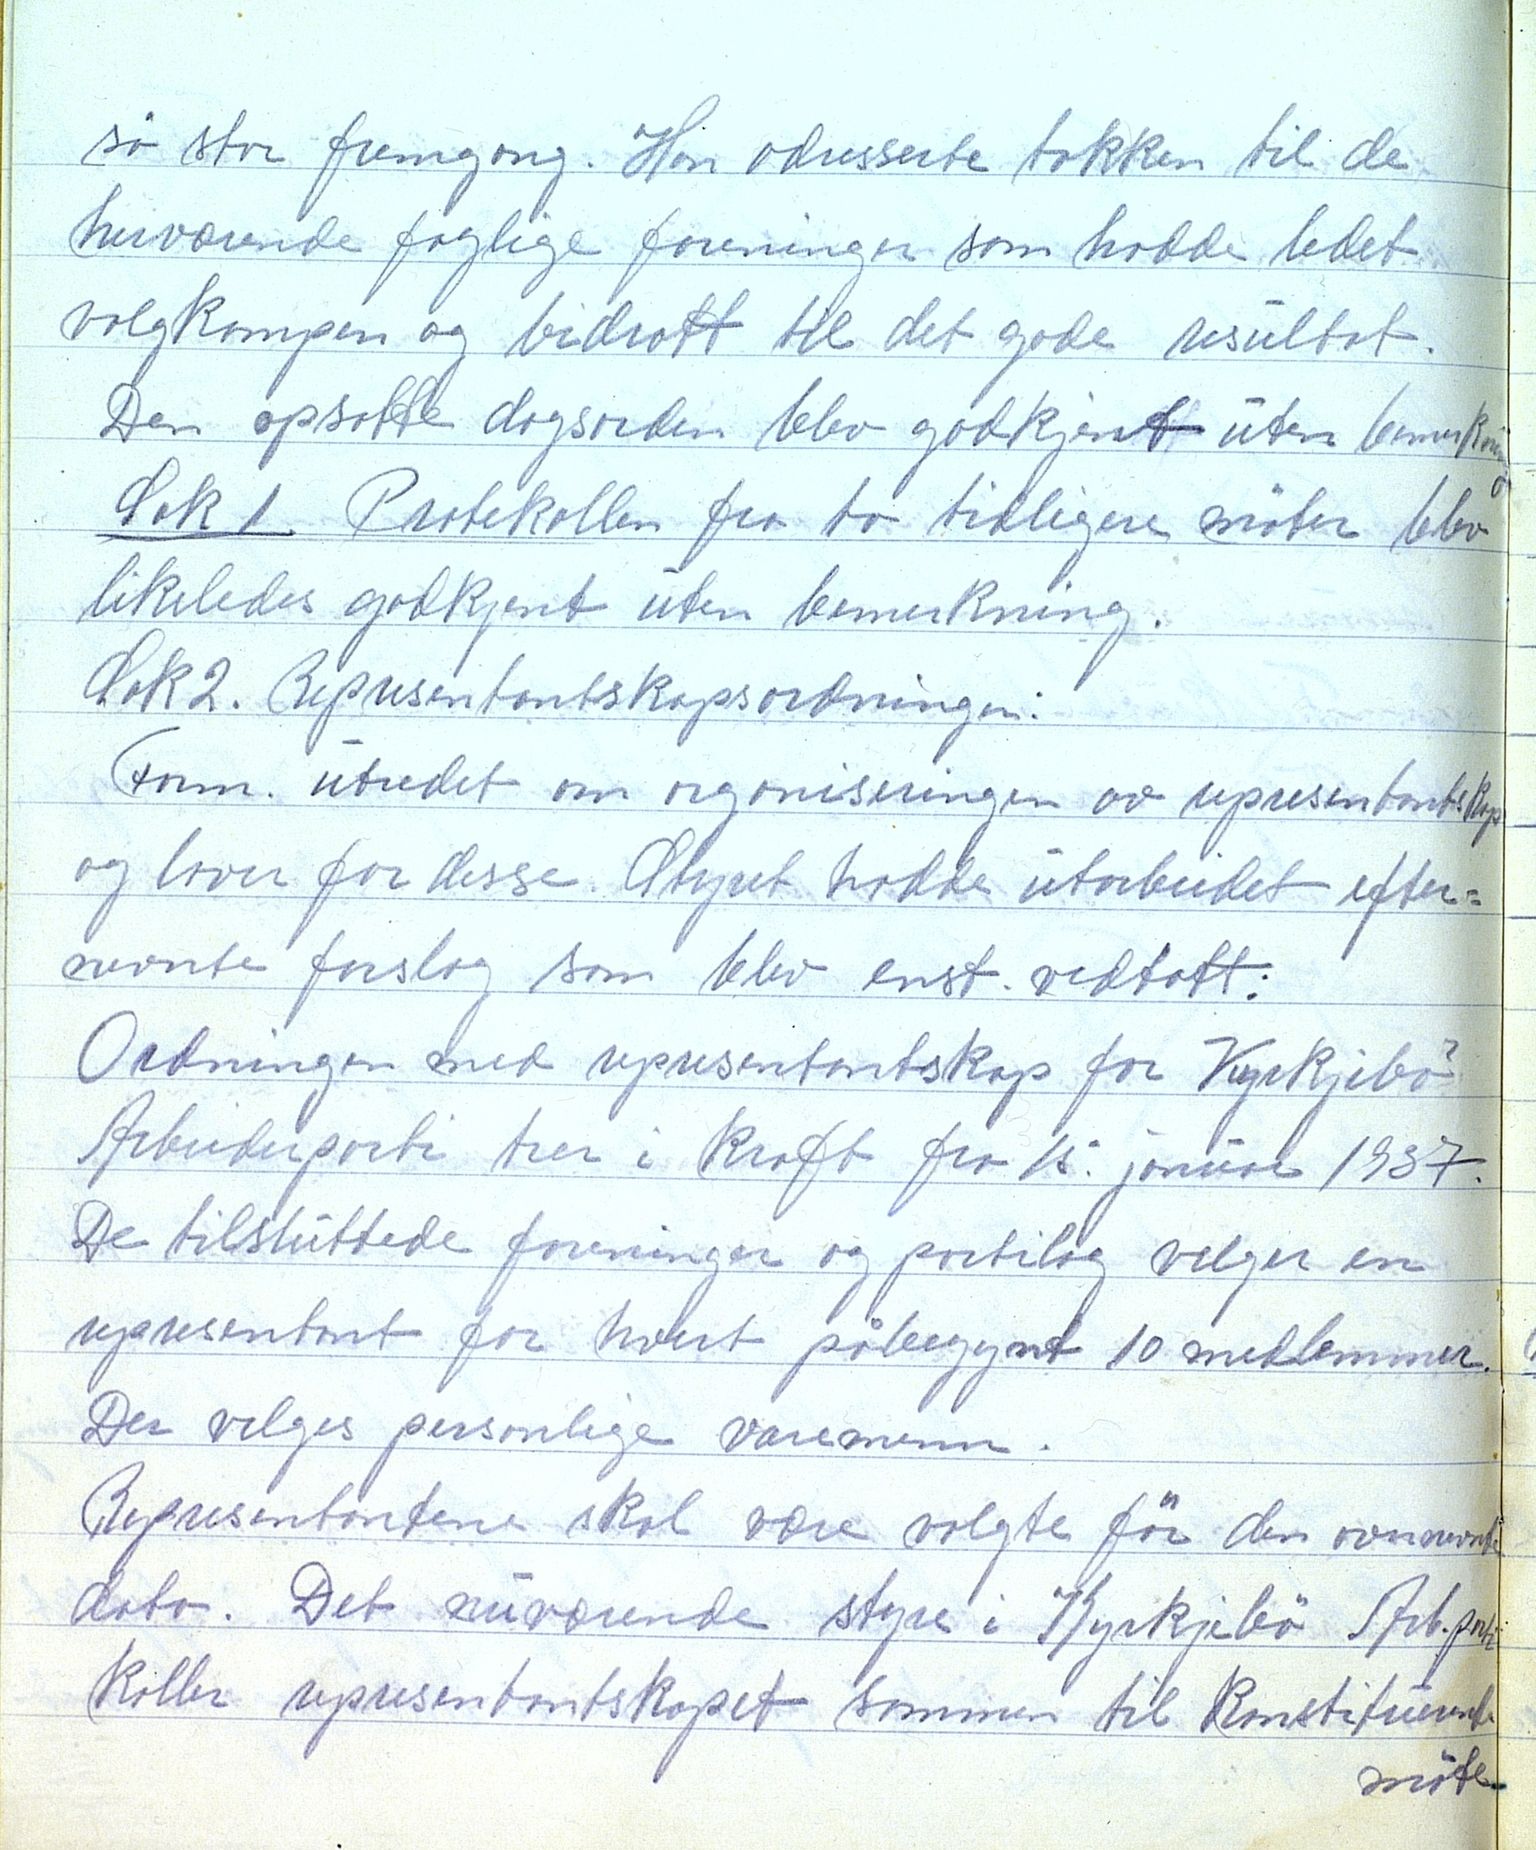 så stor fremgang. Han adresserte takken til de
herværende faglige foreninger som hadde ledet
valgkampen og bidratt til det gode resultat.
Den opsatte dagsorden blev godkjent uten bemerkning
Sak 1. Protokollen fra to tidligere möter blev
likeledes godkjent uten bemerkning.
Sak 2. Representantskapsordningen:
Form. utredet om organiseringen av representantskap
og lover for desse. Styret hadde utarbeidet efter=
nevnte forslag som blev enst. vedtatt:
Ordningen med representantskap for Kyrkjebö
Arbeiderparti trer i kraft fra 15. januar 1937.
De tilsluttede foreninger og partilag velger en
representant for hvert påbegynt 10 medlemmer.
Der velges personlige varemenn.
Representantene skal være valgte för den ovennevnte
dato. Det nuværende styre i Kyrkjebö Arb.parti
kaller representantskapet sammen til konstituerende
möte